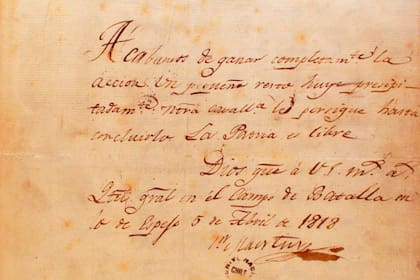 Acabamos de ganar completamte la
accion. Un pequeño resto huye presipi-
tadamte: nrâ cavalla lo persigue hasta
concluirlo La Patria es libre
Dios gue a V.S. ms as
Qtel gral en el Campo de Batalla en
lo de Espejo 5 de Abril de 1818
Sn Martin
CHILE